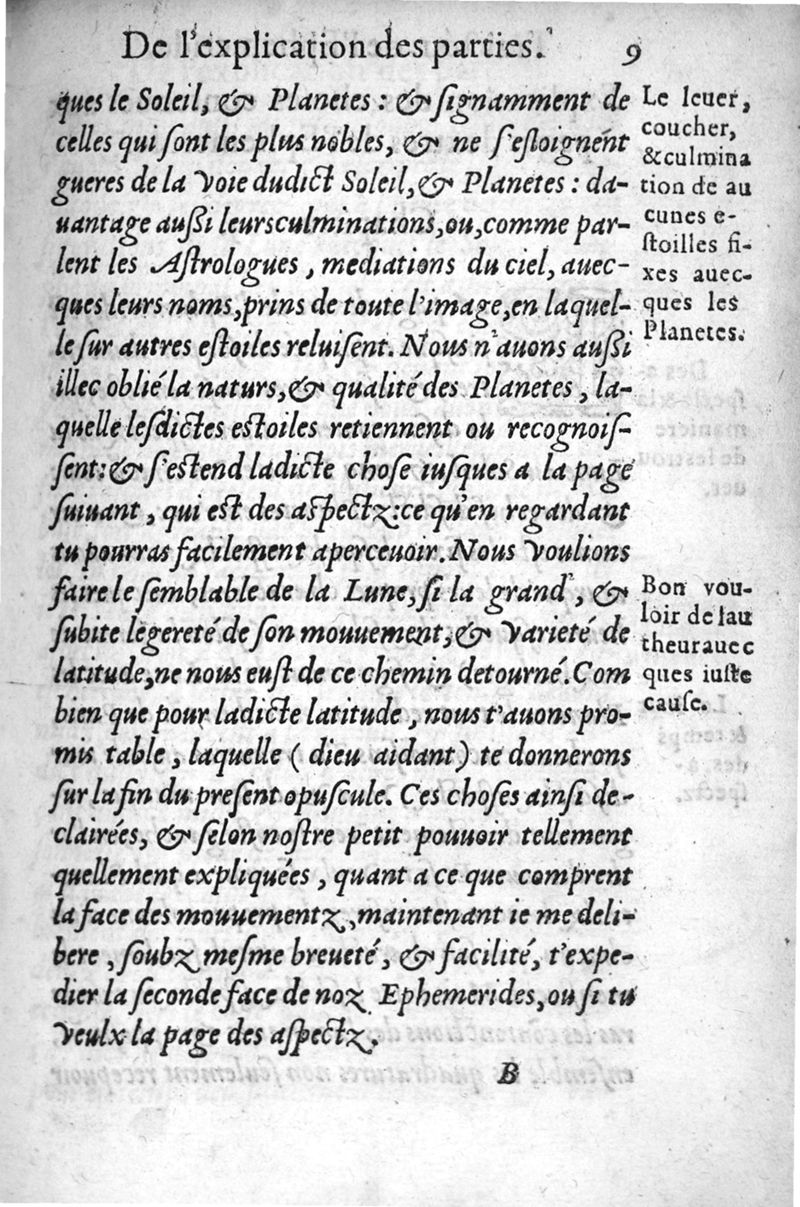 De l'explication des parties. 9
ques le Soleil, & Planetes : & ſignamment de
celles qui ſont les plus nobles, & ne ſ'eſloignent
gueres de la voie dudict Soleil, & Planetes : da-
uantage auſſi leursculminations, ou, comme par-
lent les Aſtrologues, mediations du ciel, auec-
ques leurs noms, prins de toute l'image, en laquel-
le ſur autres eſtoiles reluiſent. Nous n'auons auſſi
illec oblié la naturs, & qualité des Planetes, la-
quelle leſdictes estoiles retiennent ou recognoiſ-
ſent: & ſ'estend ladicte choſe iuſques a la page
ſuiuant, qui est des aſpectz: ce qu'en regardant
tu pourras facilement aperceuoir. Nous voulions
faire le ſemblable de la Lune, ſi la grand', &
ſubite legereté de ſon mouuement, & varieté de
latitude, ne nous euſt de ce chemin detourné. Com
bien que pour ladicte latitude, nous t'auons pro-
mis table, laquelle ( dieu aidant) te donnerons
ſur la fin du preſent opuſcule. Ces choſes ainſi de-
clairées, & ſelon noſtre petit pouuoir tellement
quellement expliquées, quant a ce que comprent
la face des mouuementz, maintenant ie me deli-
bere, ſoubz meſme breueté, & facilité, t'expe-
dier la ſeconde face de noz Ephemerides, ou ſi tu
veulx la page des aſpectz.
B
Le leuer,
coucher,
&culmina
tion de au
cunes e-
ſtoilles fi-
xes auec-
ques les
Planetes.
Bon vou-
loir de lau
theurauec
ques iuſte
cauſe.